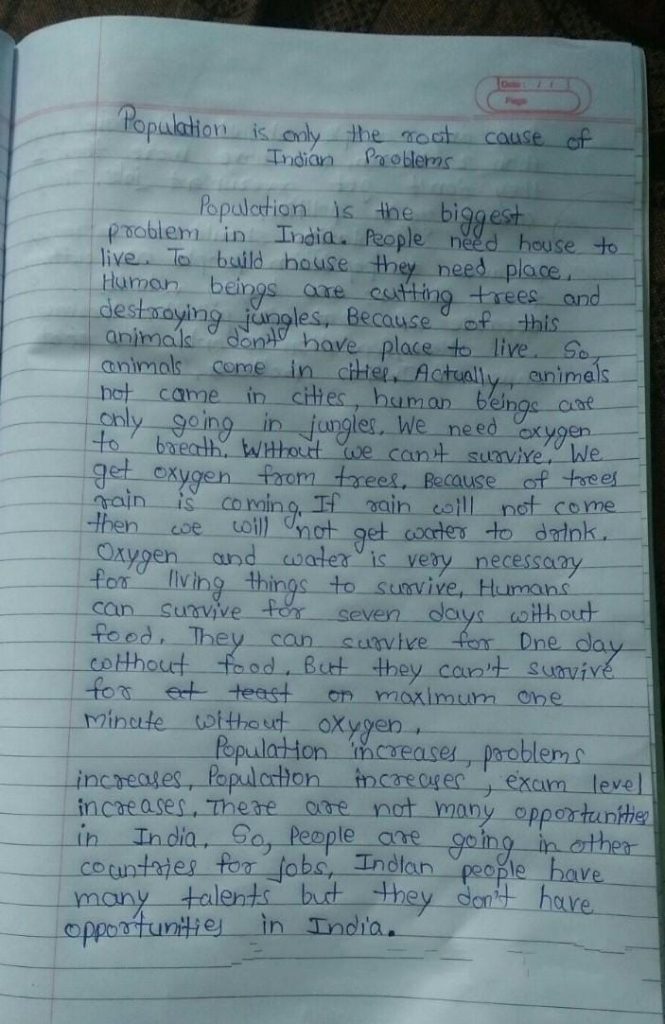 Date: / /
Page
Population is only the root cause of
Indian Problems
Population is the biggest
problem in India. People need house to
live. To build house they need place.
Human beings are cutting trees and
destroying jungles. Because of this
animals don't have place to live. So,
animals come in cities. Actually, animals
not came in cities, human beings are
only going in jungles. We need oxygen
to breath. Without we can't survive. We
get oxygen from trees. Because of trees
rain is coming. If rain will not come
then we will not get water to drink.
Oxygen and water is very necessary
for living things to survive, Humans
can survive for seven days without
food. They can survive for One day
without food. But they can't survive
for at least on maximum one
minute without oxygen.
Population increases, problems
increases. Population increases, exam level
increases. There are not many opportunities
in India. So, People are going in other
countries for jobs, Indian people have
many talents but they don't have
opportunities in India.